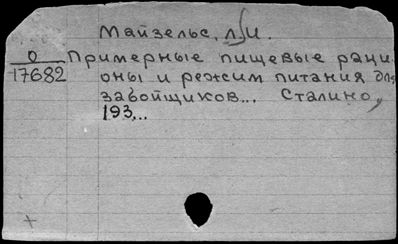 Майзельс, Л.И.
О Примерные пищевые раци
17682 оны и режим питания для
забойщиков... Сталино,
193...